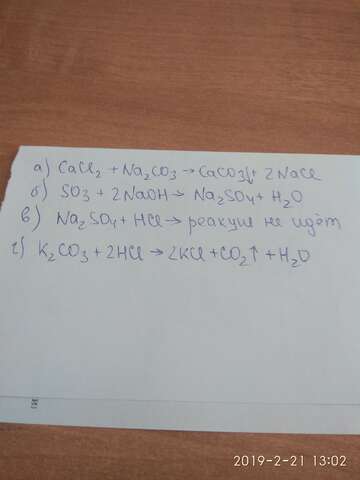 а) CaCl₂ + Na₂CO₃ → CaCO₃↓ + 2NaCl
б) SO₃ + 2NaOH → Na₂SO₄ + H₂O
в) Na₂SO₄ + HCl → реакция не идёт
г) K₂CO₃ + 2HCl → 2KCl + CO₂↑ + H₂O
2019-2-21 13:02